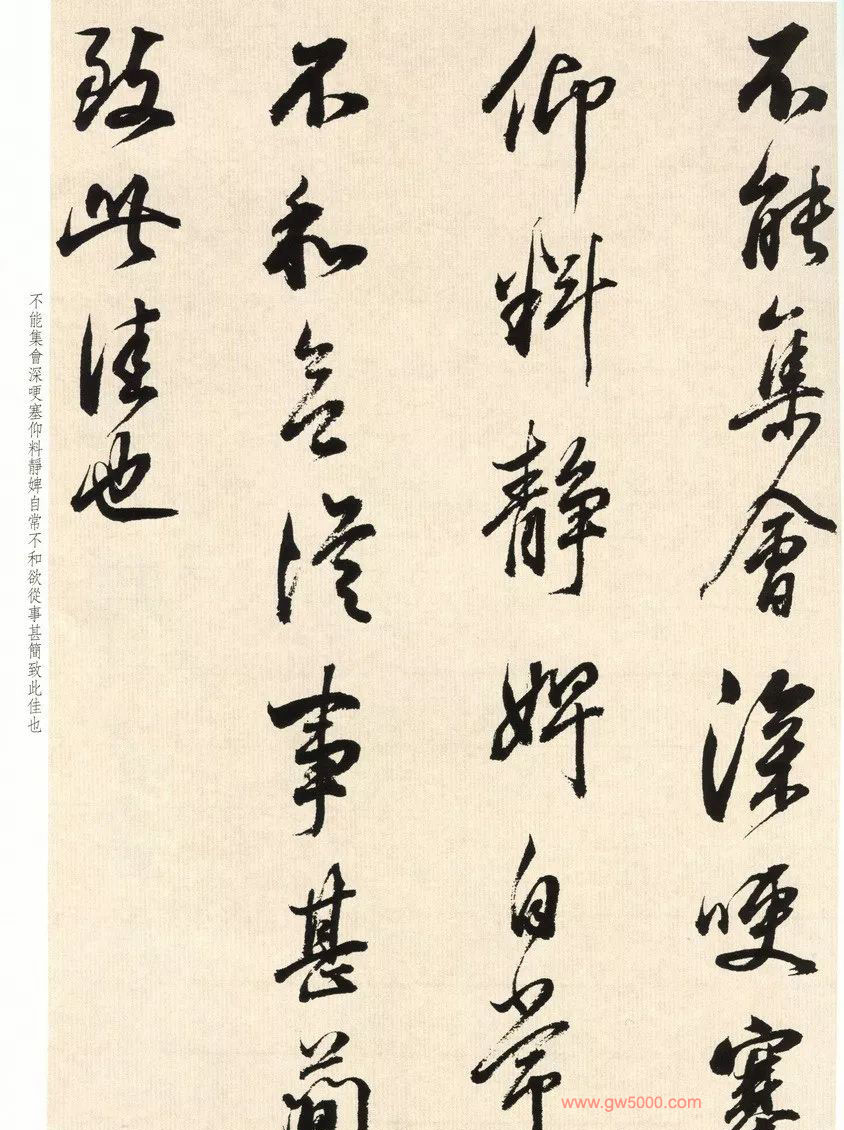 不能集會深哽塞
仰料靜婢自常
不和欲從事甚簡
致此佳也
不能集會深哽塞仰料靜婢自常不和欲從事甚簡致此佳也
www.gw5000.com